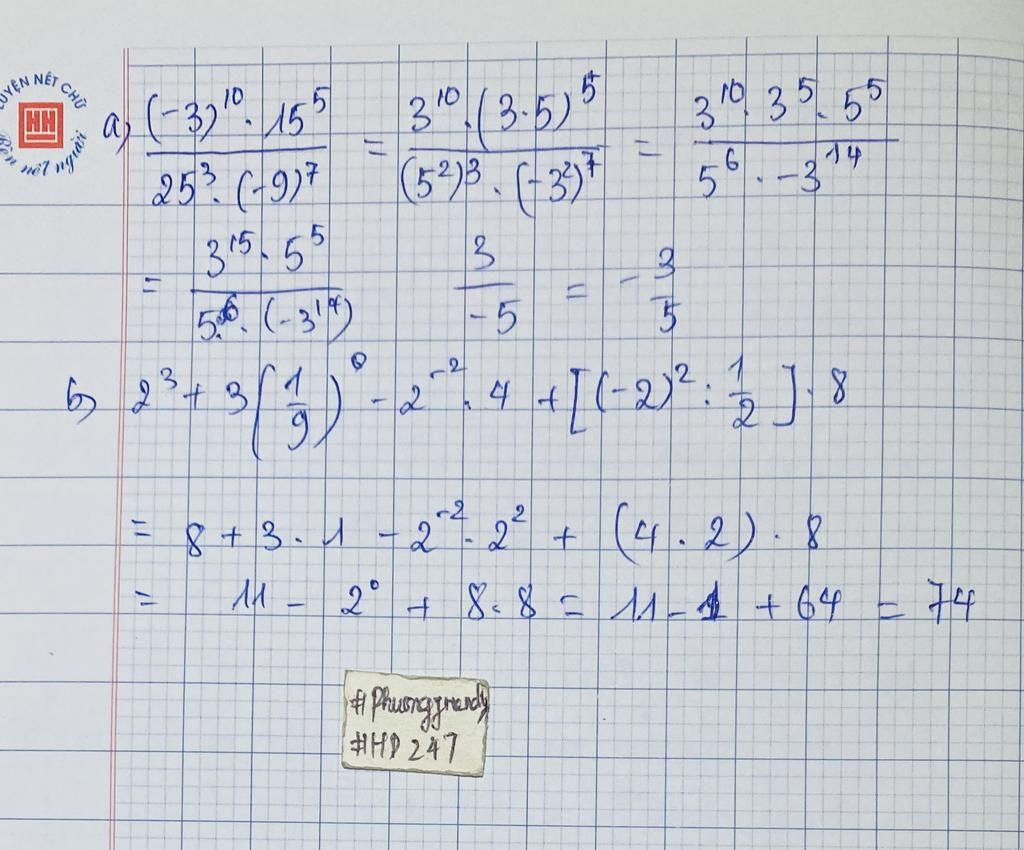 LUYỆN NÉT CHỮ
HH
Rèn nết người
a, (-3)^10 . 15^5 / 25^3 . (-9)^7 = 3^10 . (3.5)^5 / (5^2)^3 . (-3^2)^7 = 3^10 . 3^5 . 5^5 / 5^6 . -3^14
= 3^15 . 5^5 / 5^6 . (-3^14) 3 / -5 = - 3 / 5
b, 2^3 + 3 (1/9)^0 - 2^-2 . 4 + [(-2)^2 : 1/2] . 8
= 8 + 3 . 1 - 2^-2 . 2^2 + (4 . 2) . 8
= 11 - 2^0 + 8 . 8 = 11 - 1 + 64 = 74
#HD 247